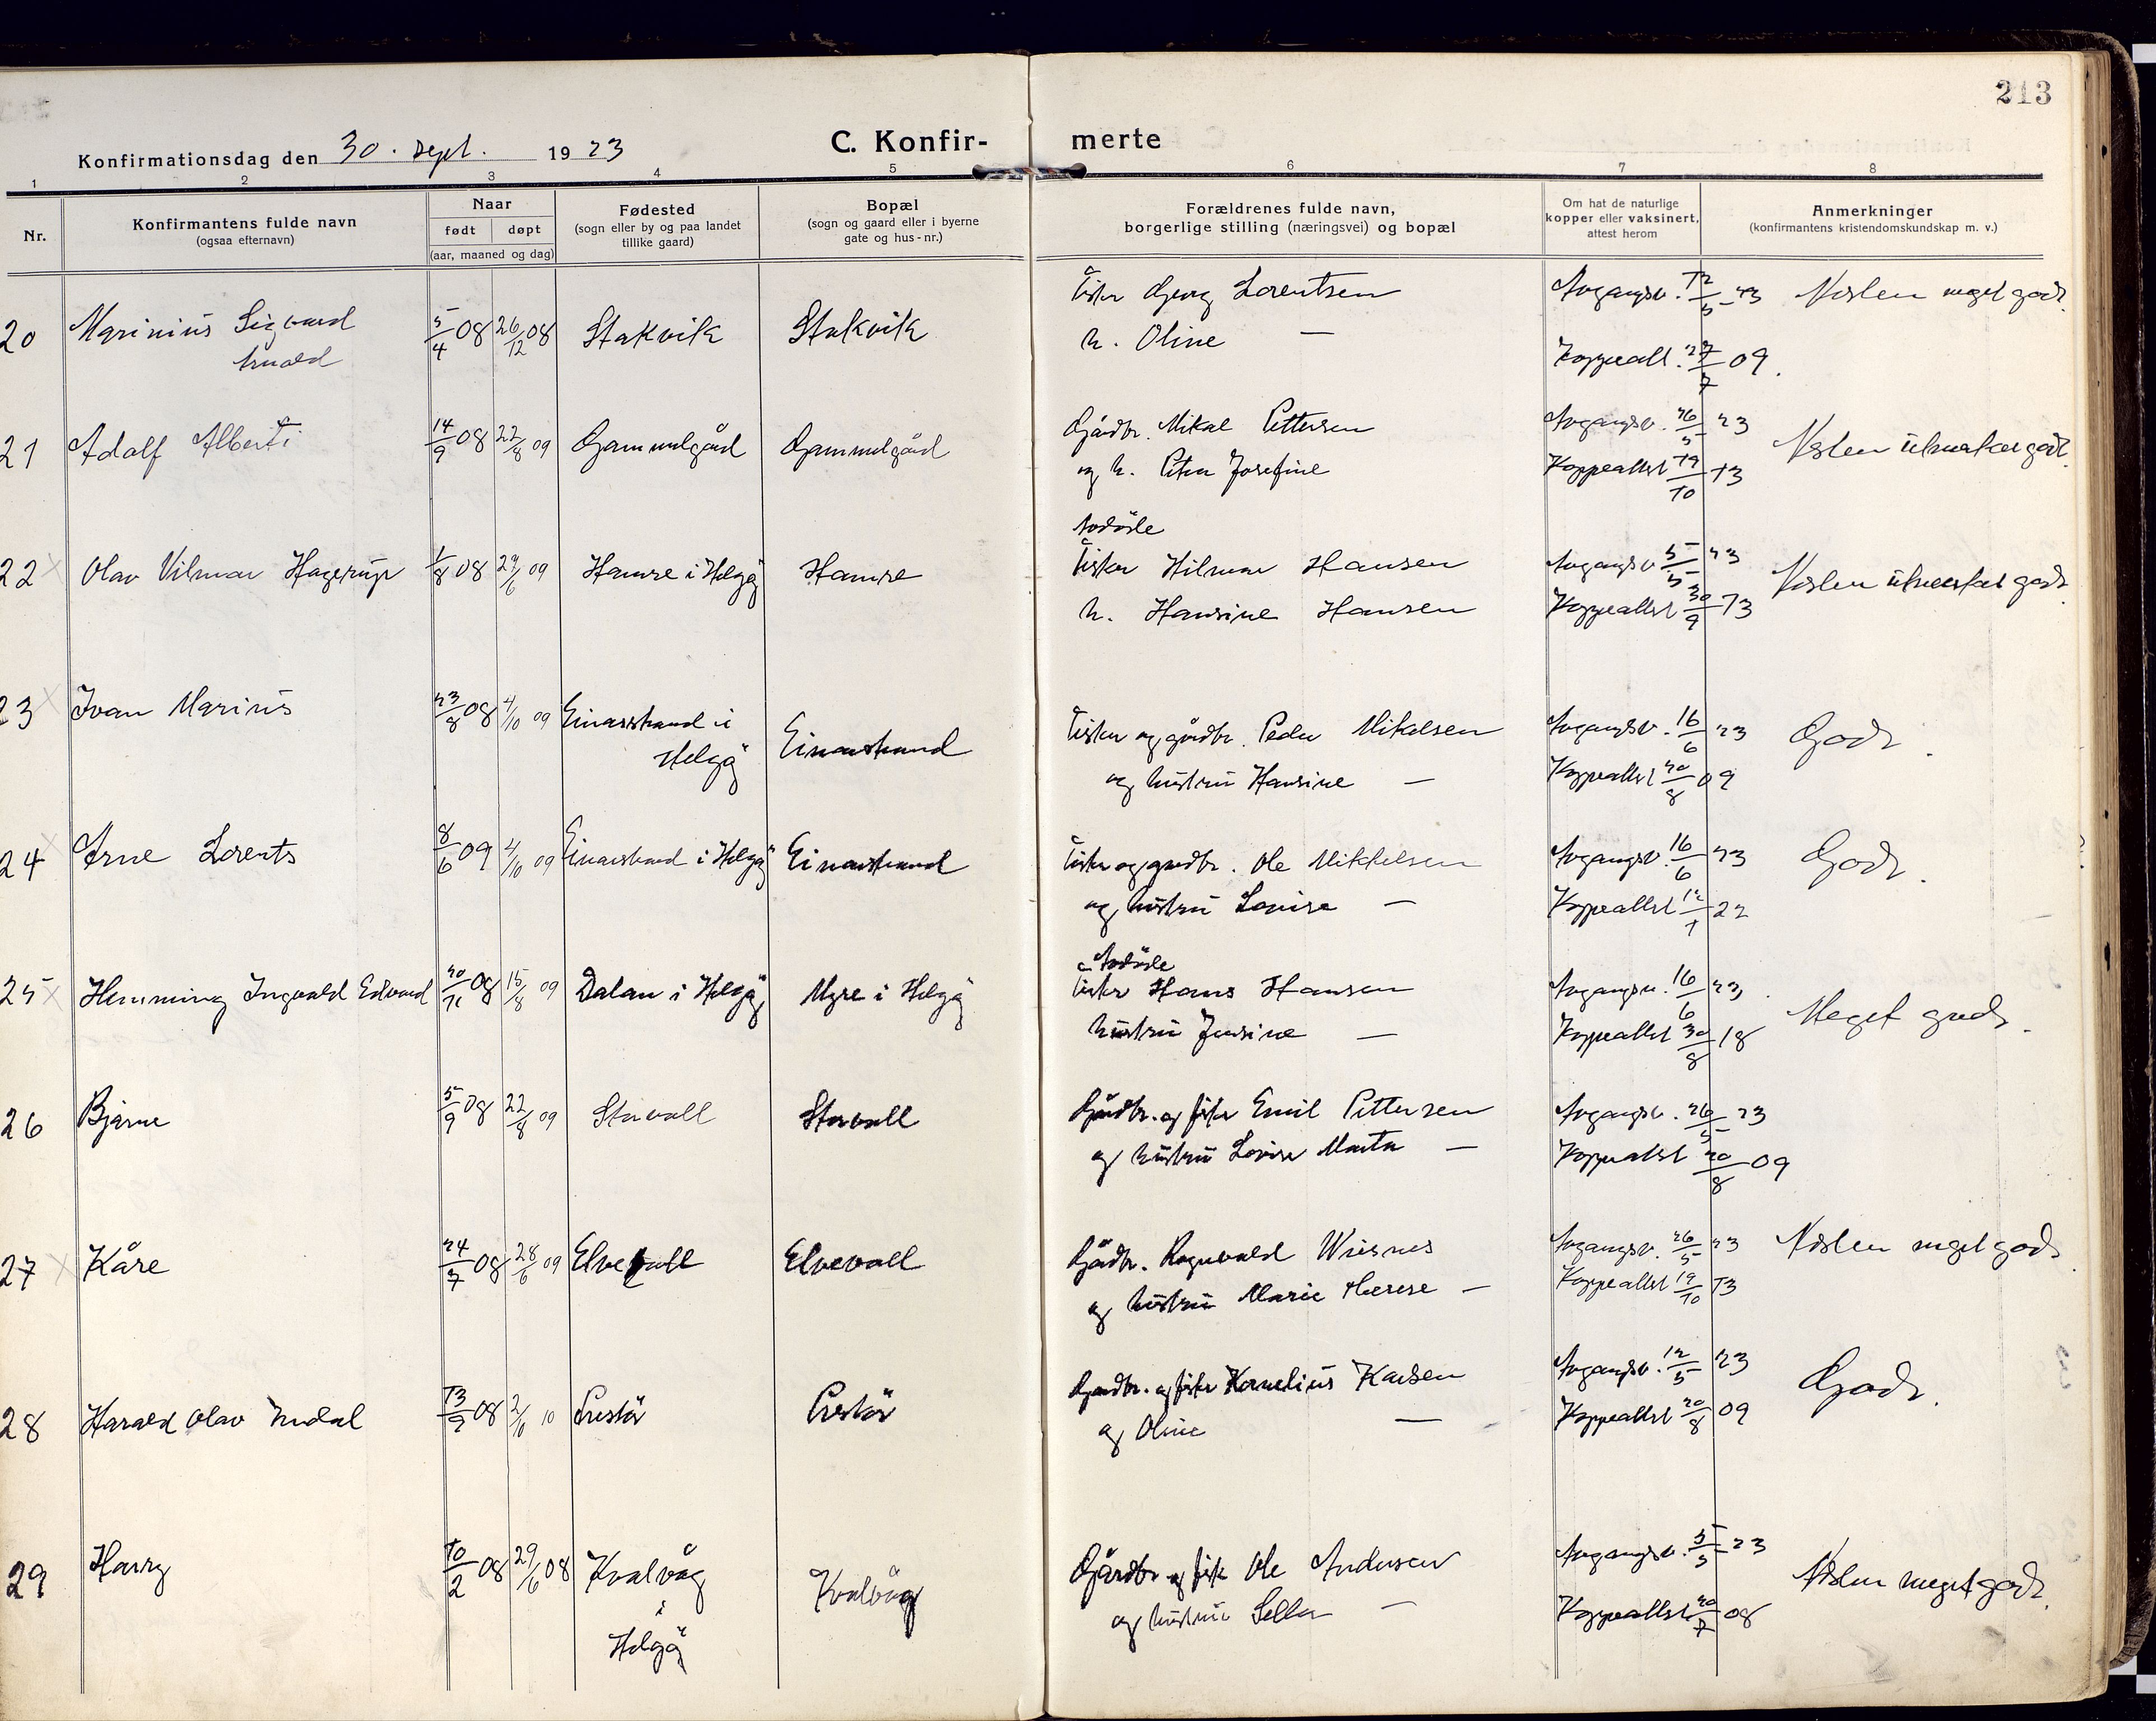 213
Konfirmationsdag den 30. sept. 1923
C. Konfir-
merte
1 2 3 4 5 6 7 8
Nr.
Konfirmantens fulde navn
(ogsaa efternavn)
Naar
født døpt
(aar, maaned og dag)
Fødested
(sogn eller by og paa landet
tillike gaard)
Bopæl
(sogn og gaard eller i byerne
gate og hus-nr.)
Forældrenes fulde navn,
borgerlige stilling (næringsvei) og bopæl
Om hat de naturlige
kopper eller vaksinert,
attest herom
Anmerkninger
(konfirmantens kristendomskundskap m. v.)
20 Marinius Sigvard 5/4 08 26/12 08 Stakvik Stakvik Fisker Georg Lorentsen Avgangsv. 12/5 23 Næsten meget godt.
Arnold
h. Oline — Koppeatt. 27/7 09.
21 Adolf Alberti 14/9 08 22/8 09 Gammelgård Gammelgård Gårdbr. Mikal Pettersen Avgangsv. 26/5 23 Næsten utmerket godt.
og h. Petra Josefine Koppeattst 19/10 13
Avdøde
22 Olav Vilmar Hagerup 1/8 08 29/6 09 Hamre i Helgø Hamre Fisker Hilmar Hansen Avgangsv 5/5 23 Næsten utmerket godt
h. Hansine Hansen Koppeattst 30/9 13
23 Ivan Marius 23/8 08 4/10 09 Einarstrand i Helgø Einarstrand Fisker og gårdbr. Peder Mikalsen Avgangsv. 16/6 23 Godt.
og hustru Hansine — Koppeattst 20/8 09
24 Arne Lorents 8/6 09 4/10 09 Einarstrand i Helgø Einarstrand Fisker og gårdbr. Ole Mikkelsen Avgangsv. 16/6 23 Godt.
og hustru Lovise — Koppeattst 12/1 22
Avdøde
25 Hemming Ingvald Edvard 20/11 08 15/8 09 Dalan i Helgø Myre i Helgø Fisker Hans Hansen Avgangsv. 16/6 23. Meget godt.
hustru Jensine — Koppeattst 30/8 18
26 Bjarne 5/9 08 22/8 09 Storvoll Storvoll Gårdbr. og fisker Emil Pettersen Avgangsv. 26/5 23
og hustru Lovise Marta — Koppeattst 20/8 09
27 Kåre 24/7 08 28/6 09 Elvevoll Elvevoll Gårdbr. Ragnvald Wiesnes Avgangsv. 26/5 23 Næsten meget godt.
og hustru Marie Therese — Koppeattst 19/10 13
28 Harald Olav 13/9 08 10 Prestør Prestør Gårdbr. og fisker Kornelius Karlsen Avgangsv. 12/5 23 Godt.
og Oline — Koppeattst 20/8 09
29 Harry 10/2 08 29/6 08 Kvalvåg i Helgø Kvalvåg Gårdbr og fisk Ole Andersen Avgangsv. 5/5 23 Næsten meget godt.
og hustru — Koppeattst 20/7 08